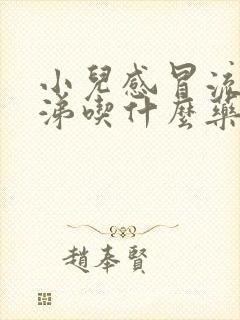 小兒感冒流
涕喫什麼藥
趙奉賢